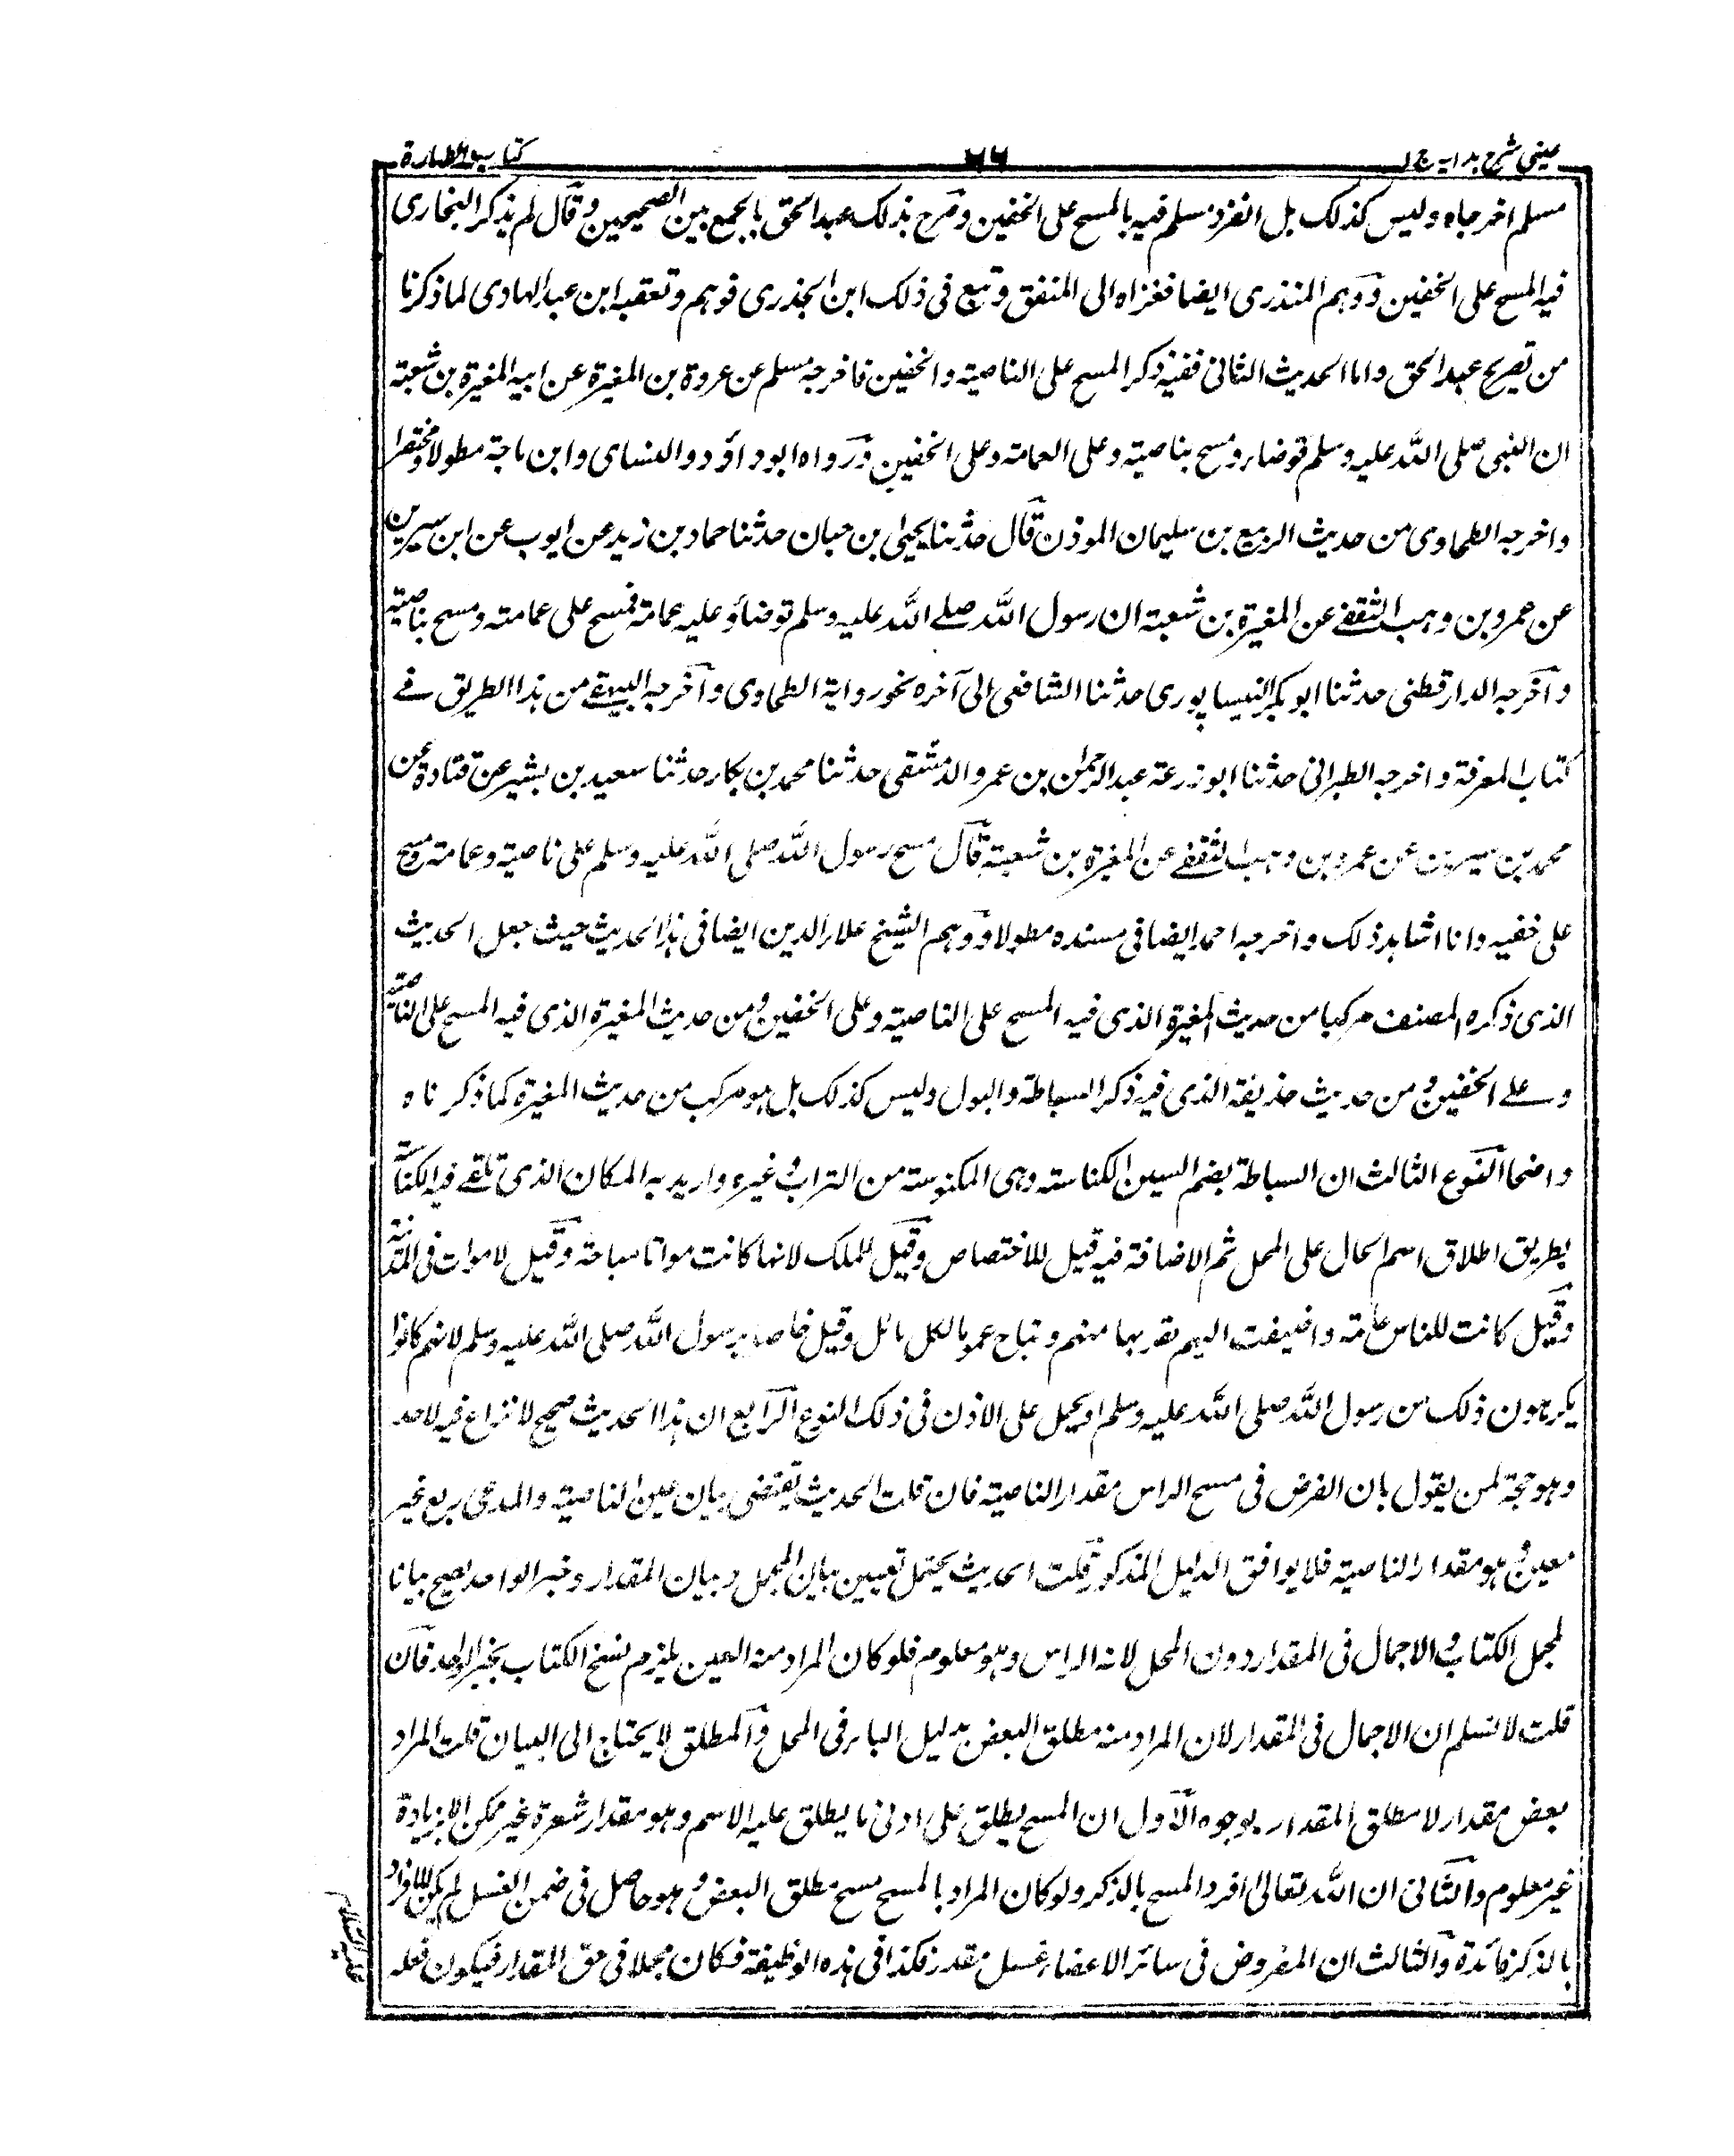 عینی شرح ہدایہ ج ١
٧٦
کتاب الطہارة
مسلم اخرجاه وليس كذلك بل انفرد مسلم فيه بالمسح على الخفين وصرح بذلك عبد الحق بالجمع بين الصحيحين وقال لم يذكر البخارى
فيه المسح على الخفين ووهم المنذرى ايضا فغزاه الى المتفق وتبع فى ذلك ابن الجذرى فوهم وتعقبه ابن عبد الهادى لما ذكرنا
من تصريح عبد الحق واما الحديث الثانى ففيه ذكر المسح على الناصية والخفين فاخرجه مسلم عن عروة بن المغيرة عن ابيه المغيرة بن شعبة
ان النبى صلى الله عليه وسلم توضاء ومسح بناصية وعلى العمامة وعلى الخفين ورواه ابو داؤد والنساى وابن ماجة مطولا ومختصرا
واخرجه الطحاوى من حديث الربيع بن سليمان الموذن قال حدثنا يحيى بن حبان حدثنا حماد بن زيد عن ايوب عن ابن سيرين
عن عمرو بن وهب الثقفے عن المغيرة بن شعبة ان رسول الله صلے الله عليه وسلم توضأ وعليه عمامة فمسح على عمامته ومسح بناصية
وآخرجه الدارقطنى حدثنا ابو بكر النيسا پورى حدثنا الشافعى الى آخره نحو رواية الطحاوى وآخرجه البيهقے من هذا الطريق فے
كتاب المعرفة واخرجه الطبرانى حدثنا ابو زرعة عبد الرحمن بن عمرو الدمشقى حدثنا محمد بن بكار حدثنا سعيد بن بشير عن قتادة عن
محمد بن سيرين عن عمرو بن وهب الثقفے عن المغيرة بن شعبة قال مسح رسول الله صلى الله عليه وسلم على ناصية وعمامته ومسح
على خفيه وانا اشاهد ذلك واخرجه احمد ايضا فى مسنده مطولا ووهم الشيخ علاء الدين ايضا فى هذا الحديث حيث جعل الحديث
الذى ذكره المصنف مركبا من حديث المغيرة الذى فيه المسح على الناصية وعلى الخفين ومن حديث المغيرة الذى فيه المسح على الناصية
وعلے الخفين ومن حديث حذيفة الذى فيه ذكر السباطة والبول وليس كذلك بل هو مركب من حديث المغيرة كما ذكرناه
واضحا النوع الثالث ان السباطة بضم السين الكناسة وهى المكنوسة من التراب وغيره واريد به المكان الذى تلقے فيه الكناسة
بطريق اطلاق اسم الحال على المحل ثم الاضافة فيه قيل للاختصاص وقيل للملك لانها كانت مواتا مباحة وقيل لا موات فى المدينة
وقيل كانت للناس عامة واضيفت اليهم بقربها منهم وتباح عموما لكل بائل وقيل خاصا برسول الله صلى الله عليه وسلم لانهم كانوا
يكرهون ذلك من رسول الله صلى الله عليه وسلم او يحمل على الاذن فى ذلك النوع الرابع ان هذا الحديث صحيح لا نزاع فيه لاحد
وهو حجة لمن يقول بان الفرض فى مسح الراس مقدار الناصية فان قلت الحديث يقتضى بيان عين الناصية والمدعى ربع غير
معين وهو مقدار الناصية فلا يوافق الدليل المذكور قلت الحديث يحتمل تعيين بيان المجمل وبيان المقدار وخبر الواحد يصح بيانا
لمجمل الكتاب والاجمال فى المقدار دون المحل لانه الراس وهو معلوم فلو كان المراد منه العين يلزم نسخ الكتاب بخبر الواحد فان
قلت لا نسلم ان الاجمال فى المقدار لان المراد منه مطلق البعض بدليل الباء فى المحل والمطلق لا يحتاج الى البيان قلت المراد
بعض مقدار لا مطلق المقدار بوجوه الاول ان المسح يطلق على ادنى ما يطلق عليه الاسم وهو مقدار شعرة غير ممكن الا بزيادة
غير معلوم والثانى ان الله تعالى افرد المسح بالذكر ولو كان المراد بالمسح مسح مطلق البعض وهو حاصل فى ضمن الغسل لم يكن للافراد
بالذكر فائدة والثالث ان المفروض فى سائر الاعضاء غسل مقدر فكذا فى هذه الوظيفة فكان مجملا فى حق المقدار فيكون فعله
عليه السلام